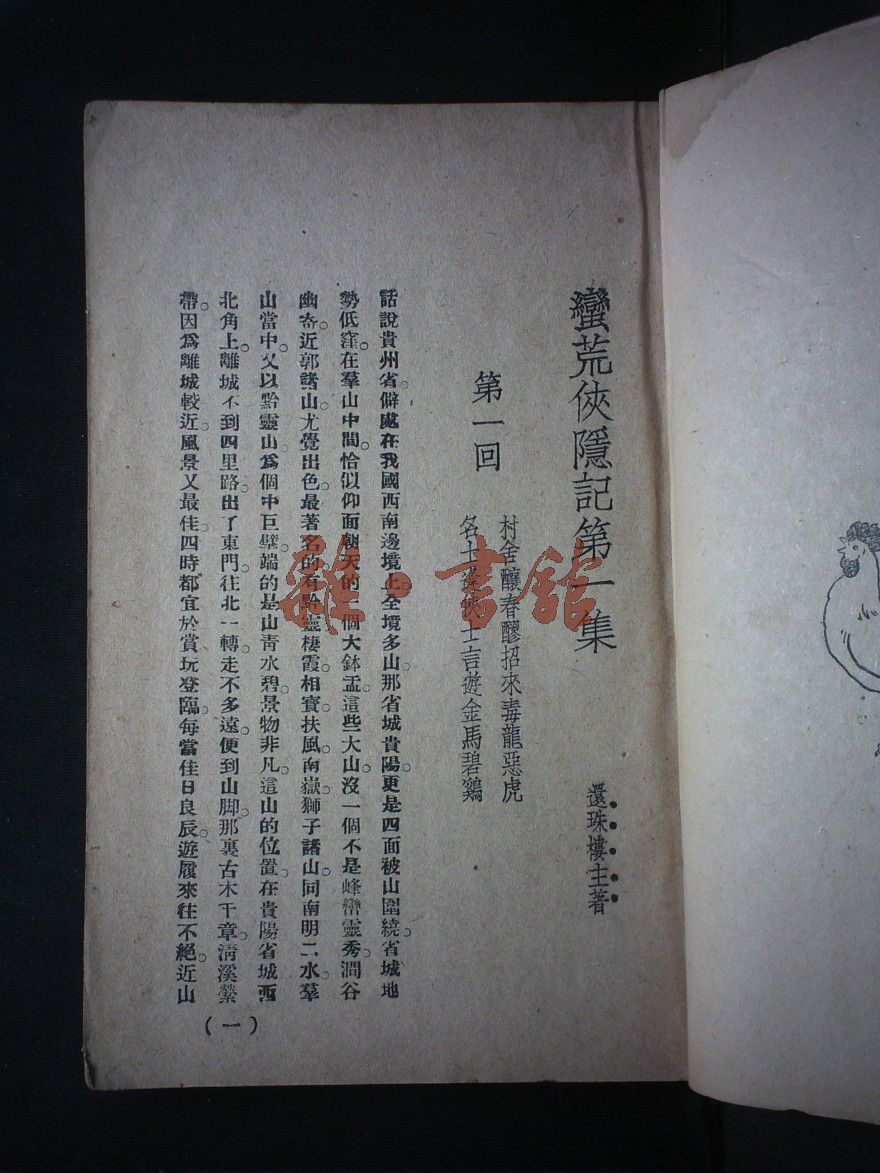 蠻荒俠隱記第一集
還珠樓主著
第一回
村舍釀春醪招來毒龍惡虎
名士 士言遊金馬碧鷄
話說貴州省。僻處在我國西南邊境上。全境多山。那省城貴陽。更是四面被山圍繞。省城地
勢低窪。在羣山中間。恰似仰面朝天的一個大鉢盂。這些大山。沒一個不是峰巒靈秀。澗谷
幽奇。近郭諸山。尤覺出色。最著名的有黔靈棲霞。相寶扶風。南嶽獅子諸山。同南明二水。羣
山當中。又以黔靈山爲個中巨擘。端的是山靑水碧。景物非凡。這山的位置。在貴陽省城西
北角上。離城不到四里路。出了東門。往北一轉。走不多遠。便到山脚。那裏古木千章。淸溪縈
帶。因爲離城較近。風景又最佳。四時都宜於賞玩登臨。每當佳日良辰。遊履來往不絕。近山
(一)
雜·書舘